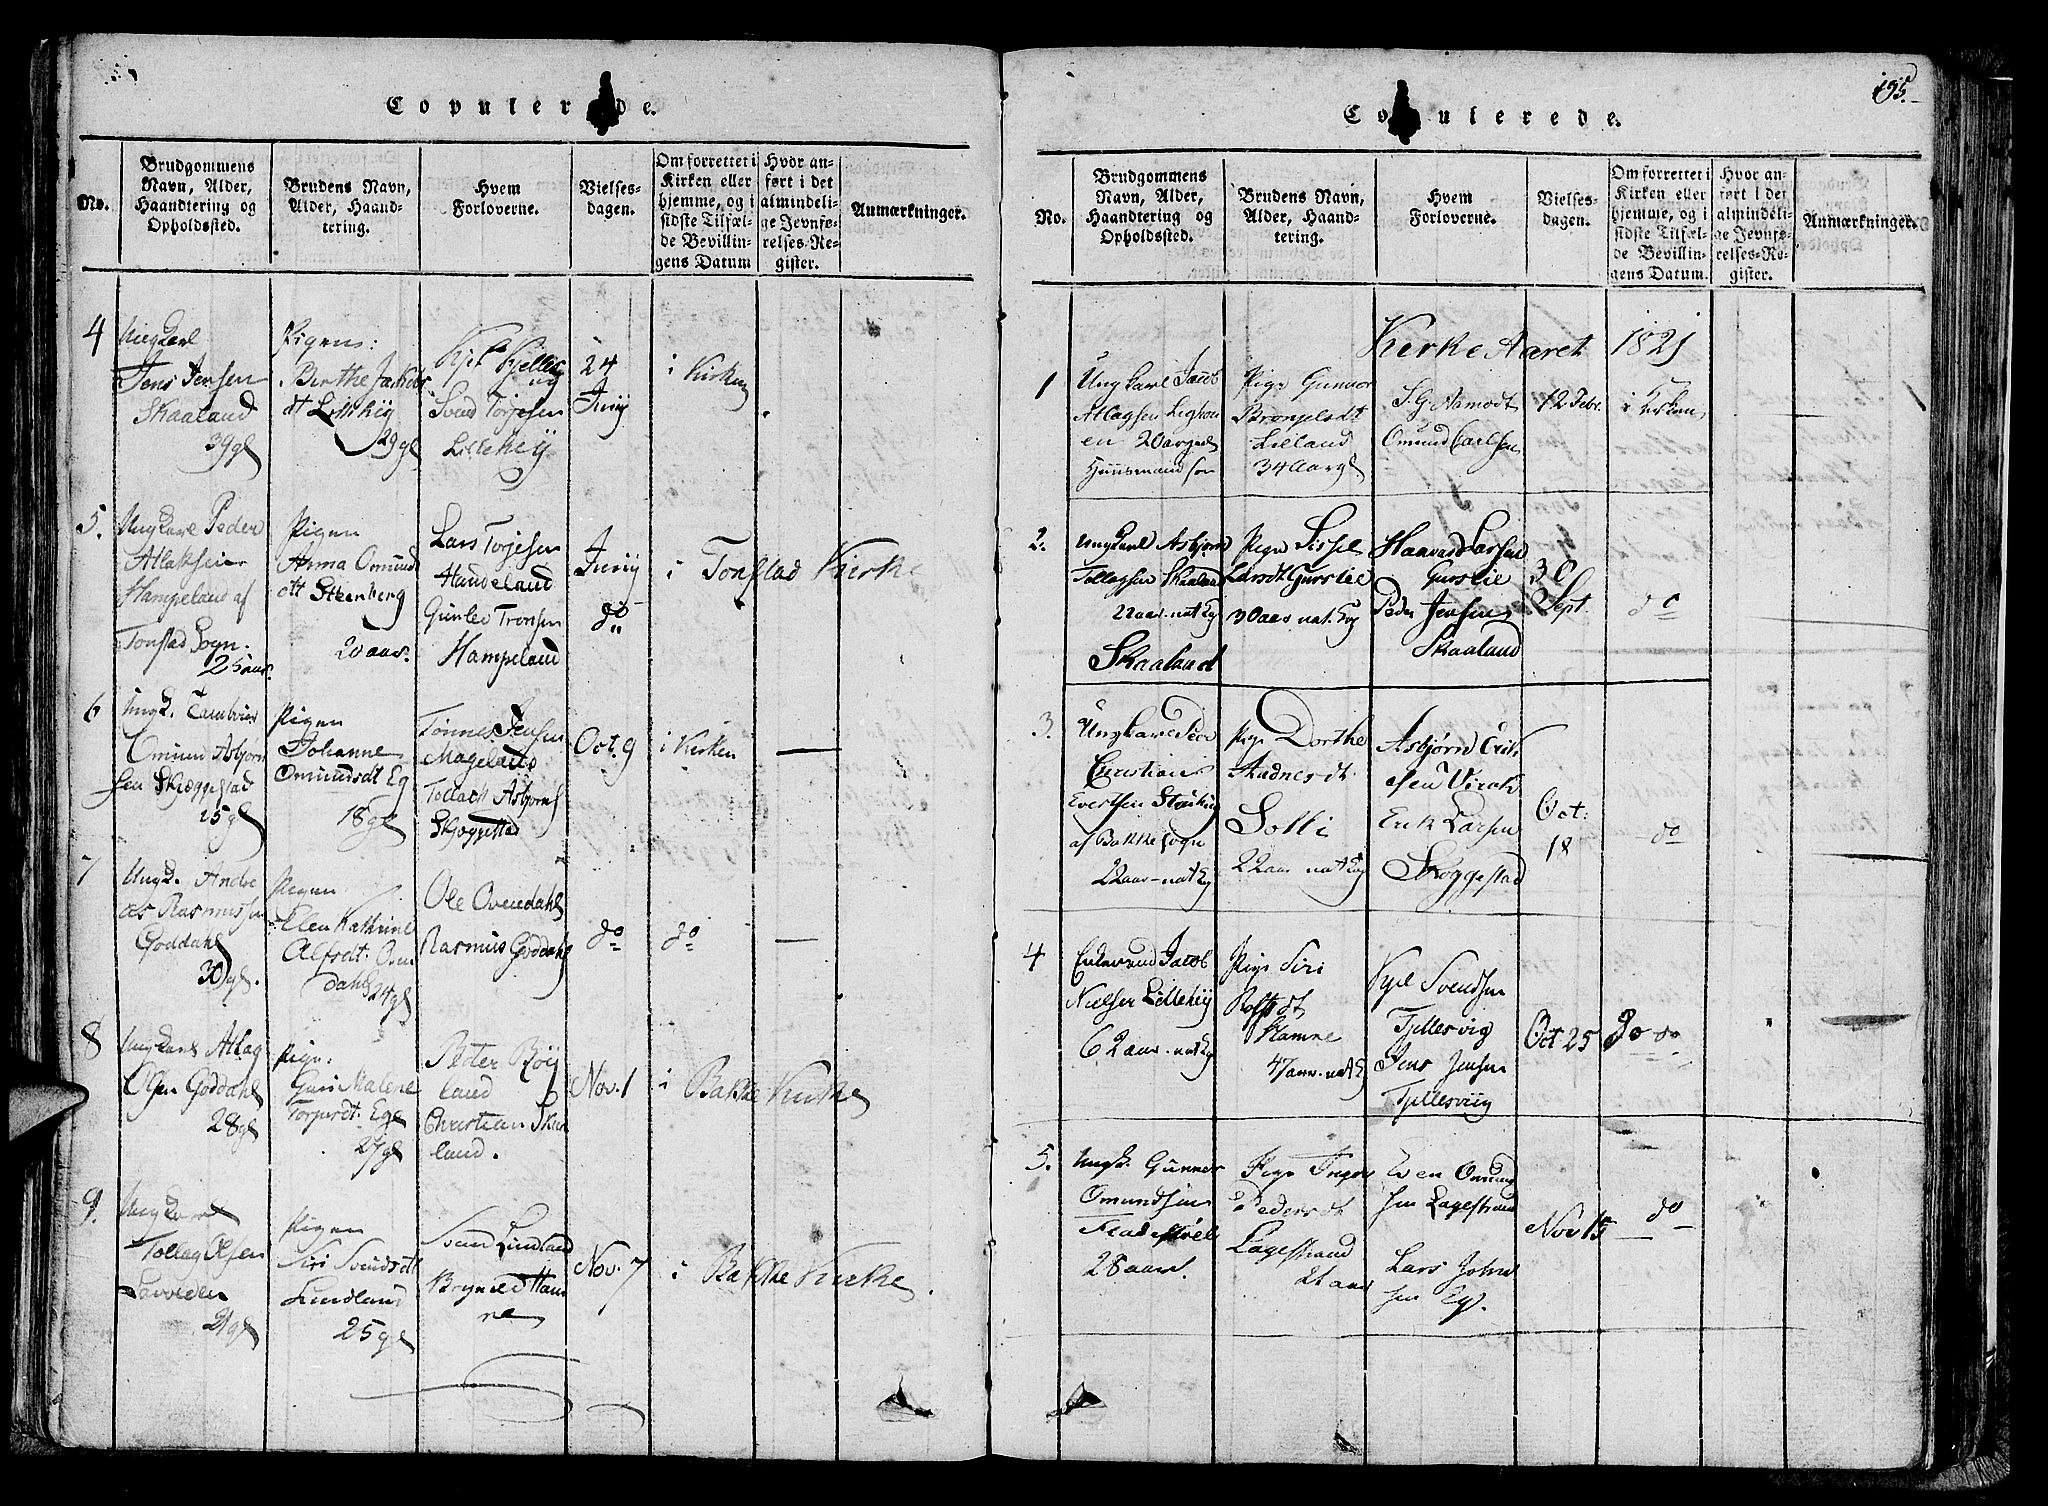 Copulerede.
No.
Brudgommens
Navn, Alder,
Haandtering og
Opholdssted.
Brudens Navn,
Alder, Haand-
tering.
Hvem
Forloverne.
Vielses-
dagen.
Om forrettet i
Kirken eller
hjemme, og i
sidste Tilfæl-
de Bevillin-
gens Datum
Hvor an-
ført i det
almindeli-
ge Jevnfø-
relses-Re-
gister.
Anmærkninger.
4
Ungkarl
Jens Jensen
Skaaland
39 gl
Pigen:
Birthe Jackobs
dt Lillehiy
29 gl
og
Svend Torjesen
Lillehiy
24
Junij
i Kirken
5.
Ungkarl Peder
Atlaksen
Hampeland af
Tonstad Sogn.
25 aar.
Pigen
Anna Omund
dt Steenberg
20 aar.
Lars Torjesen
Handeland
Gunlev Tronsen
Hampeland
Junij
do
i Tonstad Kirke
6
Ungk.
Omund Asbjørn
sen Skjeggestad
25 gl
Pigen
Johanne
Omundsdt Eg
18 gl
Tønnes Jensen
Mageland
Tollack Asbjørns
Skjeggestad
Oct. 9
i Kirken
7
Ungk. Andre
as Rasmussen
Goddahl
30 gl.
Pigen
Elen Kathrine
Alfsdt: Oven
dahl 24 gl
Ole Ovendahl
Rasmus Goddahl
do
do
8
Ungkarl Atlag
Olsen Goddahl
28 gl
Pige:
Guri Malene
Torjersdt: Ege
27 gl
Peder Røy
land
Christian Skaa
land.
Nov. 1
i Bakke Kirke
9.
Ungkarl
Tollag Olsen
21 gl
Pigen
Siri Svendsdt
Lindland
25 gl
Sven Lindland
Bryneld Ham
re
Nov. 7
i Bakke Kirke.
195.
Copulerede.
No.
Brudgommens
Navn, Alder,
Haandtering og
Opholdssted.
Brudens Navn,
Alder, Haand-
tering.
Hvem
Forloverne.
Vielses-
dagen.
Om forrettet i
Kirken eller
hjemme, og i
sidste Tilfæl-
de Bevillin-
gens Datum.
Hvor an-
ført i det
almindeli-
ge Jevnfø-
relses-Re-
gister.
Anmærkninger.
Kirke Aaret 1821
1
Ungkarl Jacob
Atlagsen
en 20 aar gl
Huusmandsøn
Pige Gunnor
Bronjelsdt
Lilland
34 Aar gl
S. G. Aamodt
Omund Carlsen
12 Febr.
i Kirken
2.
Ungkarl Asbjørn
Tollagsen Skaaland
22 aar. nat. Eg
Skaaland
Pige Sissel
Larsdt Gurslie
30 aar nat. Eg
Haavard Larsen
Gurslie
Peder Jensen
Skaaland
30
Sept.
do
3.
Ungkarl Peder
Christian
Evertsen
af Bakke sogn
22 aar - nat Eg
Pige Dorthe
Aadnesdt
Solli
22 aar nat Eg
Asbjørn Erik
sen Virak
Erik Larsen
Skeggestad
Oct:
18
do
4
Enkemand Jacob
Nielsen Lillehiy
62 aar. nat Eg
Pige Siri
Rolfsdt
Hamre
47 aar. nat E
Kjel Svendsen
Tjellesvig
Jens Jensen
Tjellesviig
Oct 25
do do
5.
Ungk. Gunner
Omundsen
28 aar.
Pige Inger
Pedersdt
Lagestrand
21 aar
Even Omund
sen Lagestrand
Lars John
sen Eg.
Nov 15
do